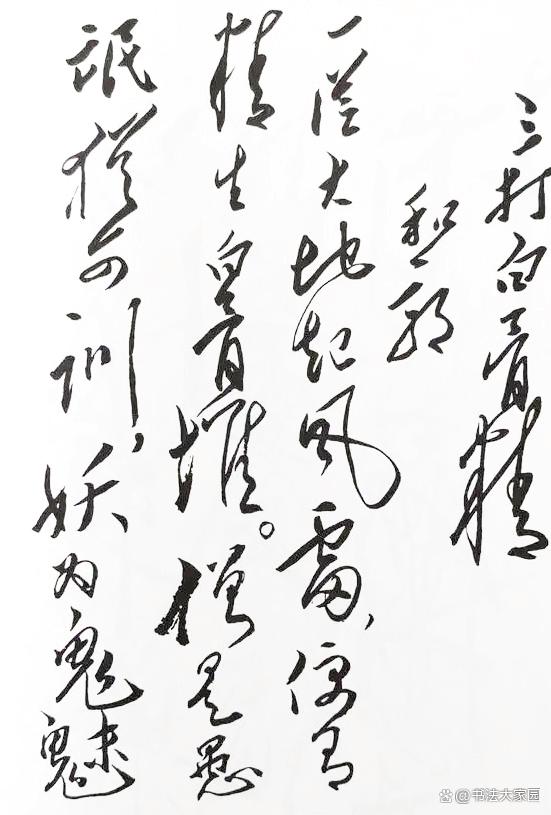 三打白骨精
和郭
一從大地起风雷，便有
精生白骨堆。僧是愚
氓猶可訓，妖为鬼魅
书法大家园